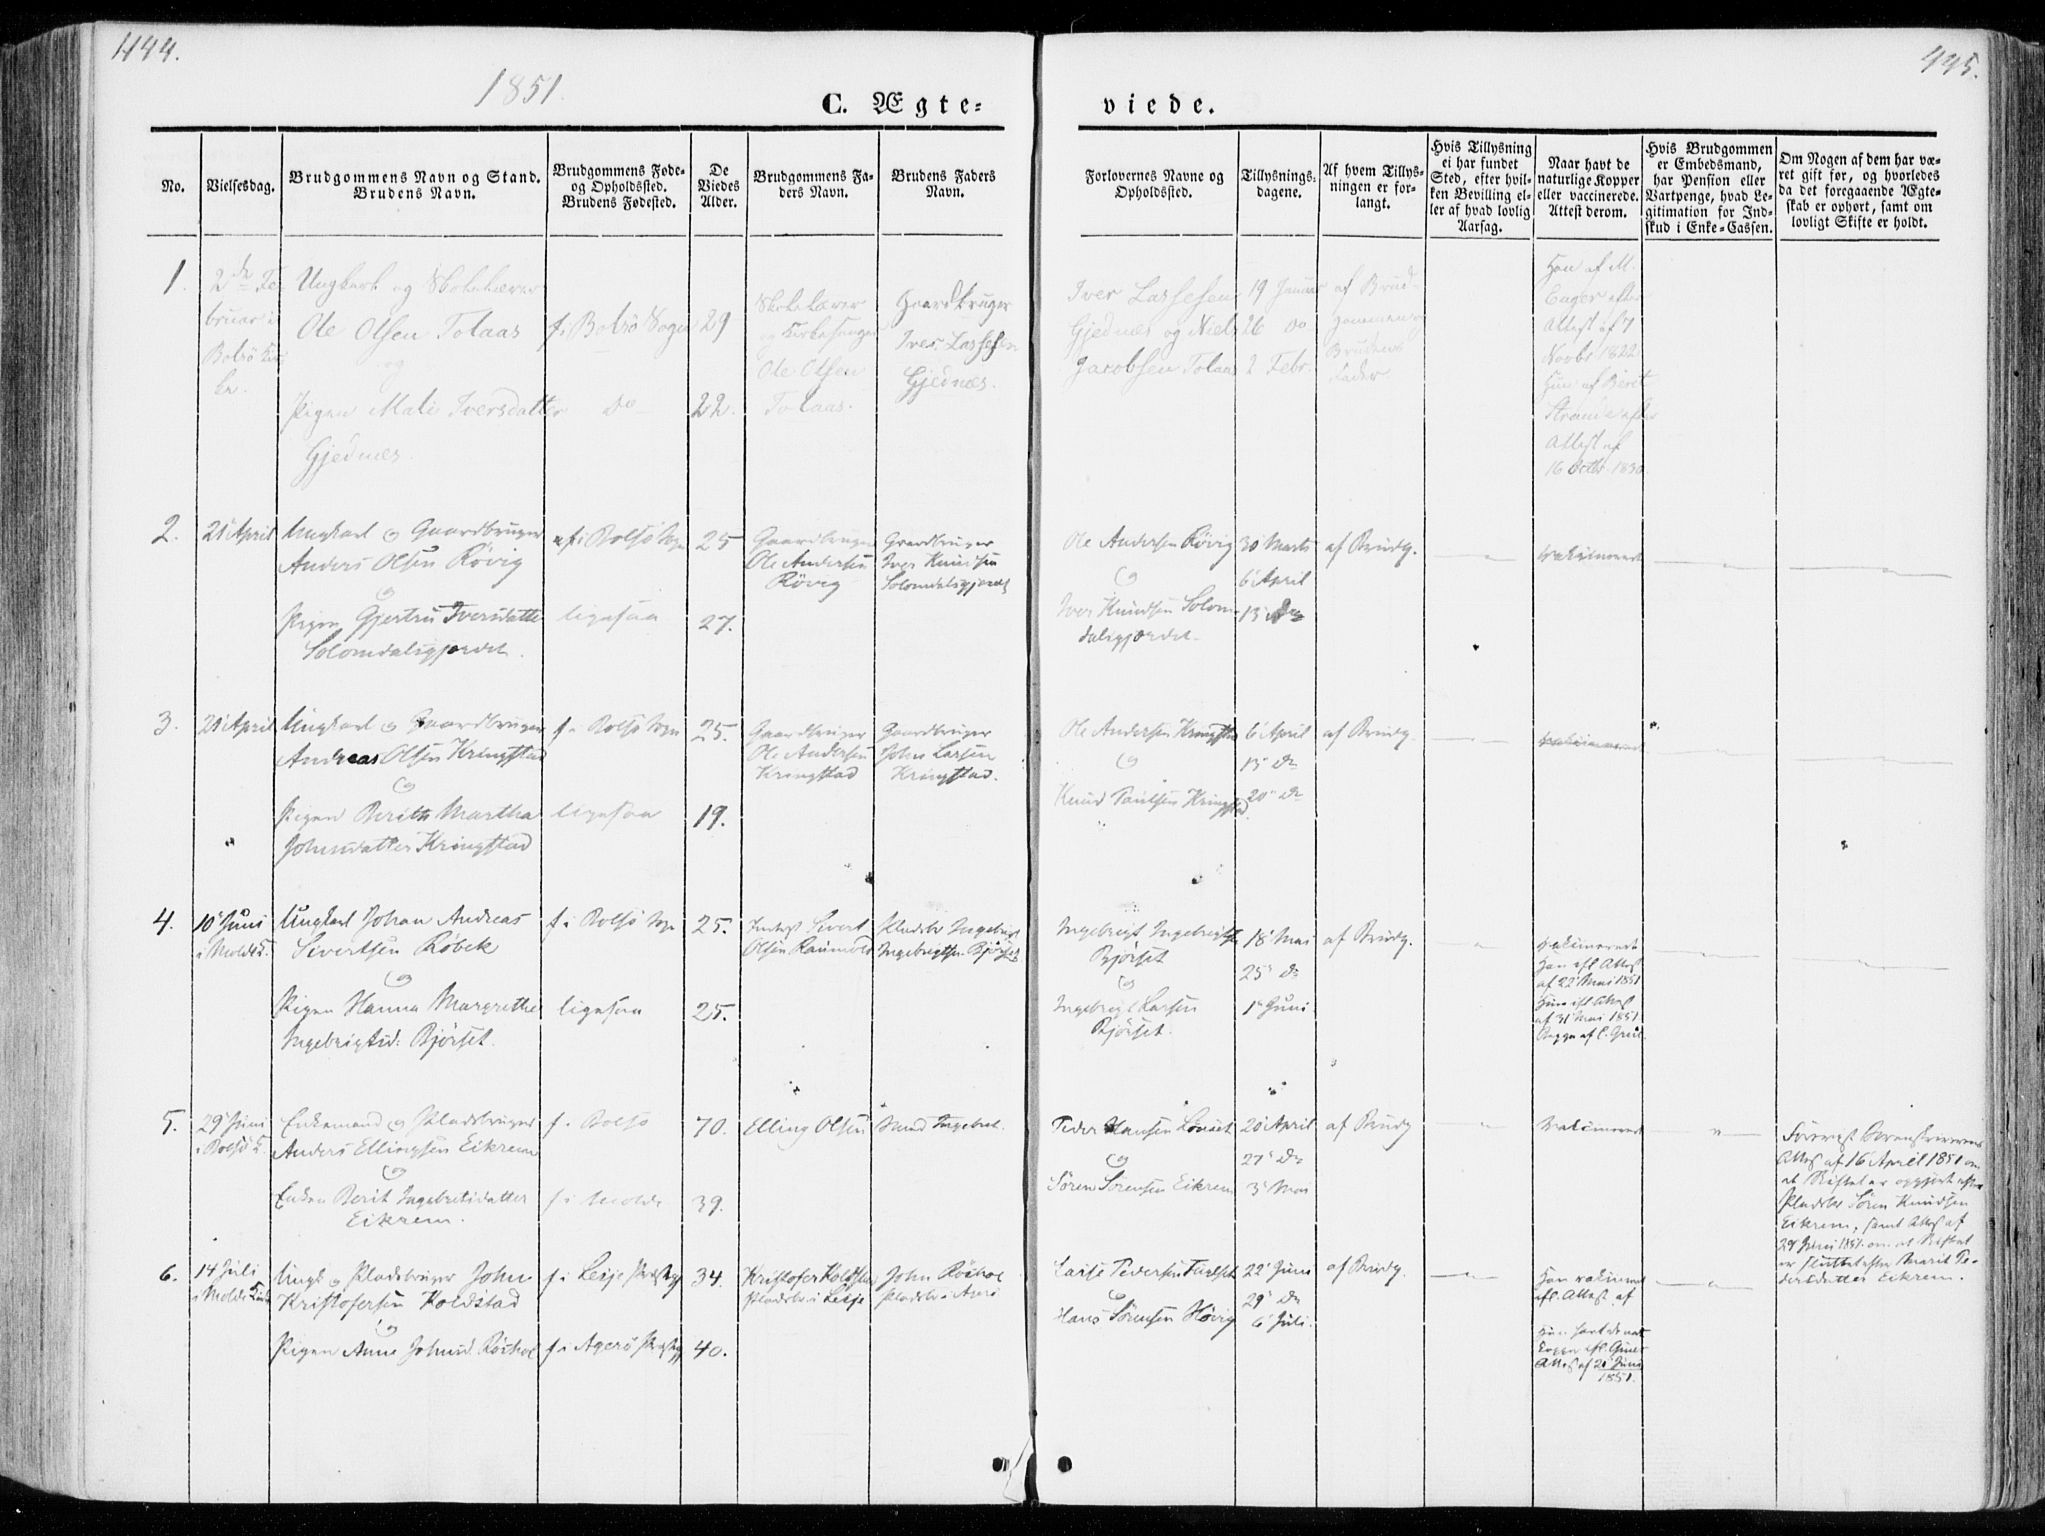 444.
1851.
C. Ægte-
No.
Vielsesdag.
Brudgommens Navn og Stand.
Brudens Navn.
Brudgommens Føde-
og Opholdssted.
Brudens Fødested.
De
Viedes
Alder.
Brudgommens Fa-
ders Navn.
Brudens Faders
Navn.
1.
2de Fe-
bruar i
Bolsö Kir
ke.
Ungkarl og Skolelærer
Ole Olsen Tolaas
og
Pigen Mali Iversdatter
Gjednæs.
f. i Bolsö Sogn
Do
29
22.
Skolelærer
og Kirkesanger
Ole Olsen
Tolaas.
Gaardbruger
Iver Lassesen
Gjednæs.
2.
21 April
Ungkarl og Gaardbruger
Anders Olsen Rövig
og
Pigen Gjertru Iversdatter
Solomdalsgjerdet.
f. i Bolsö Sogn
ligesaa
25
27.
Gaardbruger
Ole Andersen
Rövig
Gaardbruger
Iver Knudsen
Solomdalsgjerdet
3.
21 April
Ungkarl og Gaardbruger
Andreas Olsen Kringstad
og
Pigen Berith Martha
Johnsdatter Kringstad
f. i Bolsö Sogn
ligesaa
25.
19.
Gaardbruger
Ole Andersen
Kringstad
Gaardbruger
John Larsen
Kringstad.
4.
10 Juni
i Molde K.
Ungkarl Johan Andreas
Sivertsen Röbek
og
Pigen Hanna Margrethe
Ingebrigtsd: Bjørset.
f i Bolsö Sogn
ligesaa
25.
25.
Sivert
Olsen
Pladsbr Ingebrigt
Ingebrigtsen Bjørset
5.
29 Juni
i Bolsö K.
Enkemand og Pladsbruger
Anders Ellingsen Eikrem
og
Enken Berit Ingebretsdatter
Eikrem.
f. i Bolsö
f i Molde
70.
39.
Elling Olsen
Ingebret
6.
14 Juli
i Molde Kirke
Ungk og Pladsbruger John
Kristofersen Koldstad
og
Pigen Anne Johnsd
f i Lesje Præstegj
f i Agerö Præstegj
34.
40.
Kristofer Koldstad
Pladsbr i Lesje
John
Pladsbr i Agerö
445.
viede.
Forlovernes Navne og
Opholdssted.
Tillysnings-
dagene.
Af hvem Tillys-
ningen er for-
langt.
Hvis Tillysning
ei har fundet
Sted, efter hvil-
ken Bevilling el-
ler af hvad lovlig
Aarsag.
Naar havt de
naturlige Kopper
eller vaccinerede.
Attest derom.
Hvis Brudgommen
er Embedsmand,
har Pension eller
Vartpenge, hvad Le-
gitimation for Ind-
skud i Enke-Cassen.
Om Nogen af dem har væ-
ret gift før, og hvorledes
da det foregaaende Ægte-
skab er ophørt, samt om
lovligt Skifte er holdt.
Iver Lassesen
Gjednæs og Niels
Jacobsen Tolaas
19 Januar
26 do
2 Febr.
af Brud-
gommen og
Brudens
Fader
Han af M.
Enger efter
Attest af 7
Novbr 1822
Hun af Berit
Strande efter
Attest af
16 Octbr 1830
Ole Andersen Rövig
og
Iver Knudsen Solom-
dalsgjerdet
30 Marts
6 April
13 do
af Brudg.
vakcineret
Ole Andersen Kringstad
og
Knud Paulsen Kringstad
6 April
13 do
20 do
af Brudg.
vakcineret
Ingebrigt Ingebrigtsen
Bjørset
og
Ingebrigt Larsen
Bjørset.
18 Mai
25 do
1 Juni
af Brudg.
vakcineret
Han efl Attest
af 22 Mai 1851
Hun efl. Attest
af 31 Mai 1851
Begge af C.
Peder Hansen Lönset
og
Sören Sörensen Eikrem
20 April
27 do
3 Mai
af Brudg
vakcineret
Forevist Sorenskriverens
Attest af 16 April 1851 om
at Skiftet er opgjort efter
Pladsbr Sören Knudsen
Eikrem, samt Attest af
29 Juni 1851 om at Skiftet
er sluttet efter Marit Pe-
dersdatter Eikrem.
Lasse Pedersen
og
Hans Sörensen Hövig
22 Juni
29 do
6 Juli.
af Brudg.
Han vakcineret
efl. Attest af
Hun havt de nat.
Kopper efl.
Attest af 21 Juni
1851.